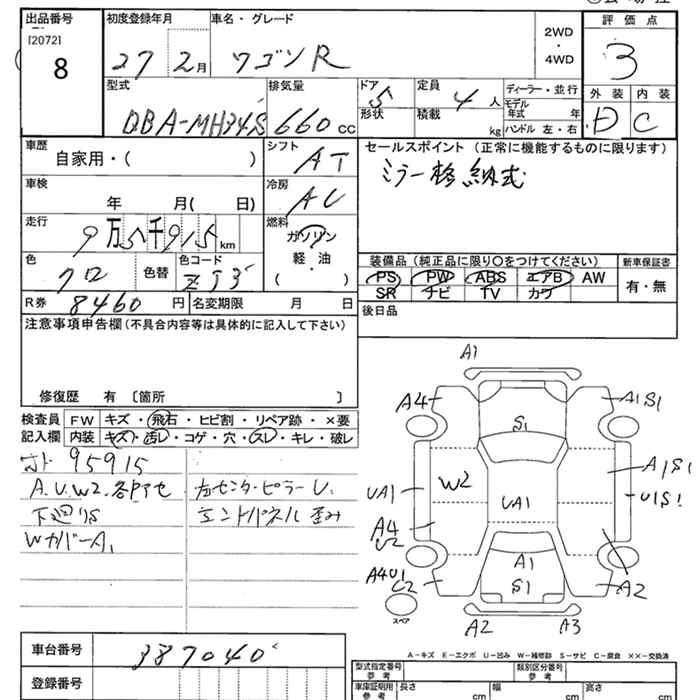 出品番号 初度登録年月 車名・グレード 2WD・4WD 評価点
[2072]
8
27 2月 ワゴンR 3
型式 排気量 ドア 5 定員 4人 ディーラー・並行 外装 内装
DBA-MH34S 660cc 形状 積載 kg モデル年式 年 D C
ハンドル 左・右
車歴 自家用・( ) シフト AT セールスポイント(正常に機能するものに限ります)
車検 年 月( 日) 冷房 AC ミラー格納式
走行 9万5千915km 燃料 ガソリン・軽油 ( )
色 クロ 色替 色コード ZJ3 装備品(純正品に限り○をつけてください) 新車保証書
PS PW ABS エアB AW 有・無
SR ナビ TV カワ
R券 8460円 名変期限 月 日 後日品
注意事項申告欄(不具合内容等は具体的に記入して下さい)
修復歴 有 〔箇所 〕
検査員記入欄 FW キズ・飛石・ヒビ割・リペア跡・×要
内装 キズ・汚レ・コゲ・穴・スレ・キレ・破レ
95915
A.U.W2.各所
下廻りS
WカバーA1
左センターピラーU.
エンドパネル歪み
A1
A4 A1S1
S1
W2 A1S1
UA1 UA1 U1S1
A4
U2
A1
S1
A4U1
C2 A2
スペア
A2 A3
A-キズ E-エクボ U-凹み W-補修跡 S-サビ C-腐食 ××-交換済
車台番号 387040
登録番号
型式指定番号 参考 類別区分番号 参考
車庫証明用 参考 長さ cm 幅 cm 高さ cm